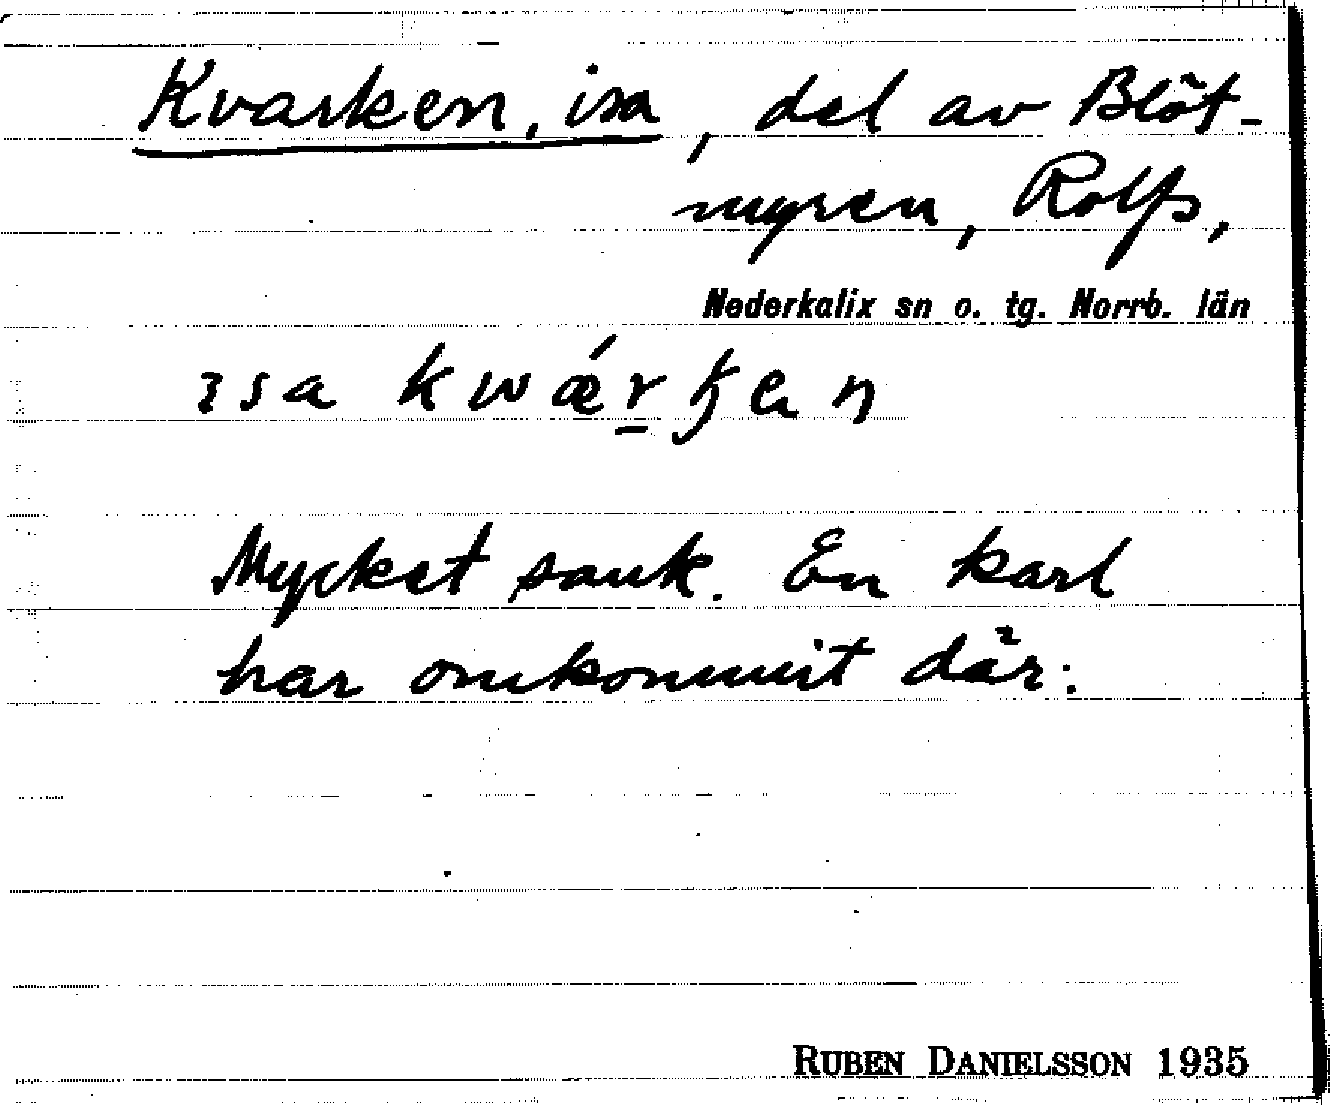 Kvarken, isa, del av Blöt-
myren, Rolfs,
Nederkalix sn o. tg. Norrb. län
ısa kwǽr̲ʞen
Mycket sank. En karl
har omkommit där.
RUBEN DANIELSSON 1935